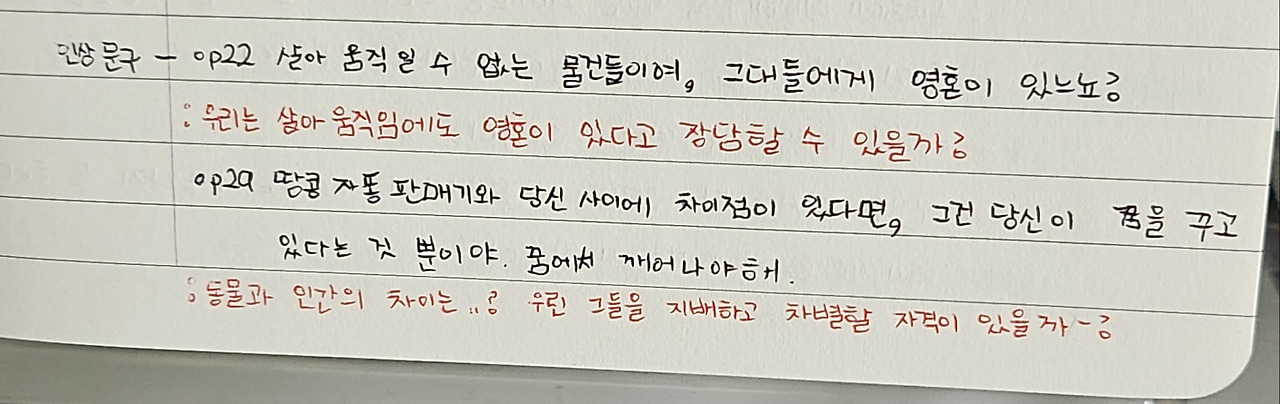 인상 문구 - op22 살아 움직일 수 없는 물건들이여, 그대들에게 영혼이 있느뇨?
: 우리는 살아 움직임에도 영혼이 있다고 장담할 수 있을까?
op29 땅콩 자동 판매기와 당신 사이에 차이점이 있다면, 그건 당신이 꿈을 꾸고
있다는 것 뿐이야. 꿈에서 깨어나야 해.
: 동물과 인간의 차이는..? 우린 그들을 지배하고 차별할 자격이 있을까-?